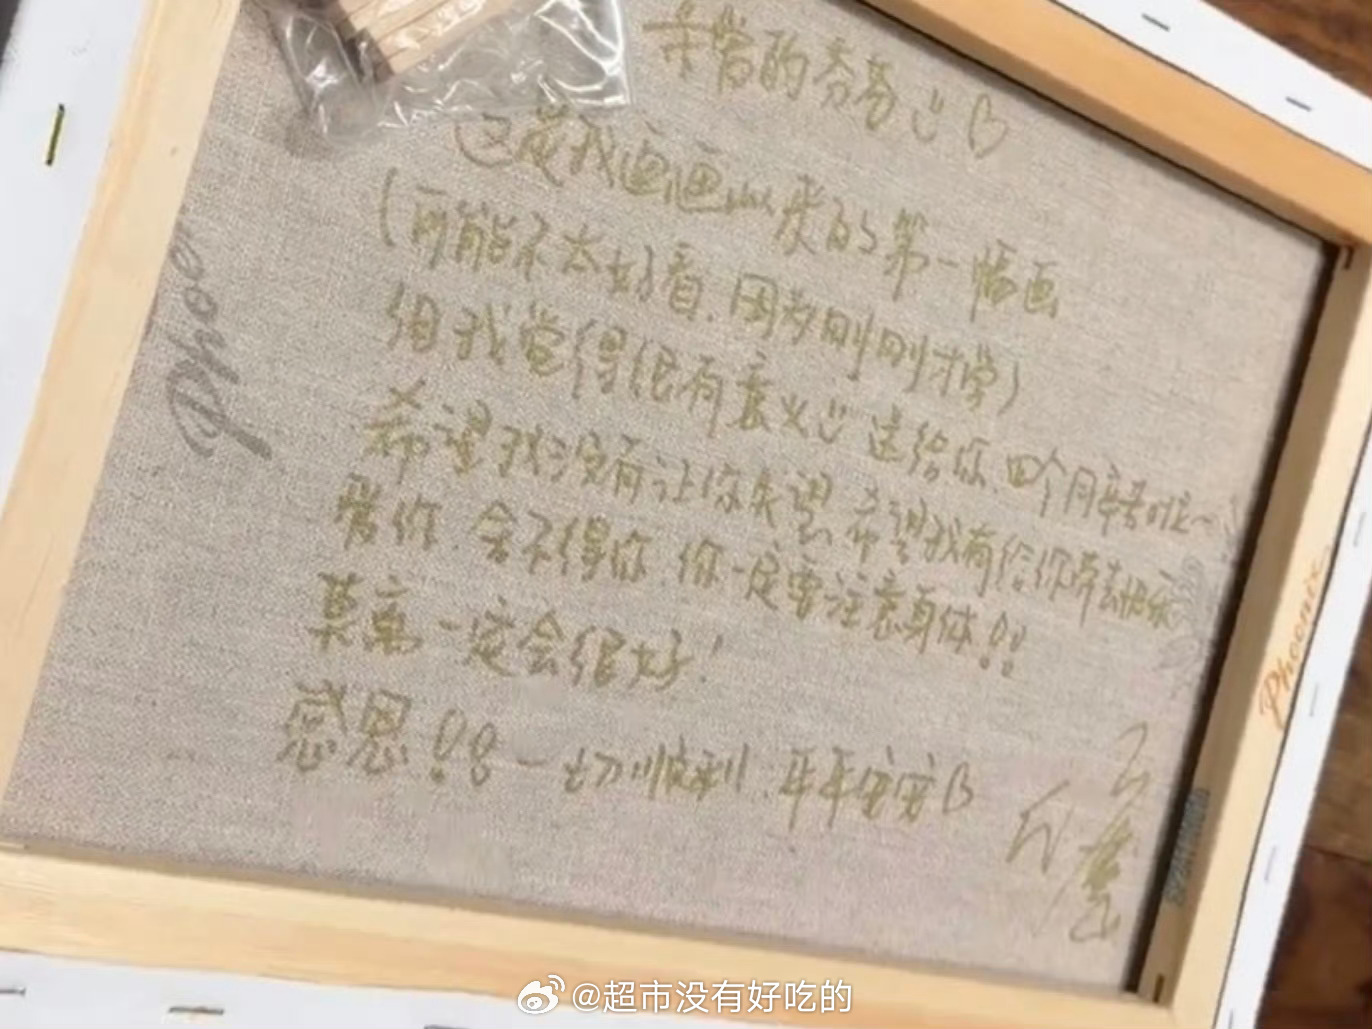 亲爱的夯哥
这是我画画以来的第一幅画
(可能不太好看.因为刚刚才学)
但我觉得很有意义 送给你.四个月辛苦啦~
希望我没有让你失望.希望我有给你带去快乐
爱你.舍不得你.你一定要注意身体!!
莫离一定会很好!
感恩!!一切顺利.平平安安
Phoe
Phoenix
@超市没有好吃的